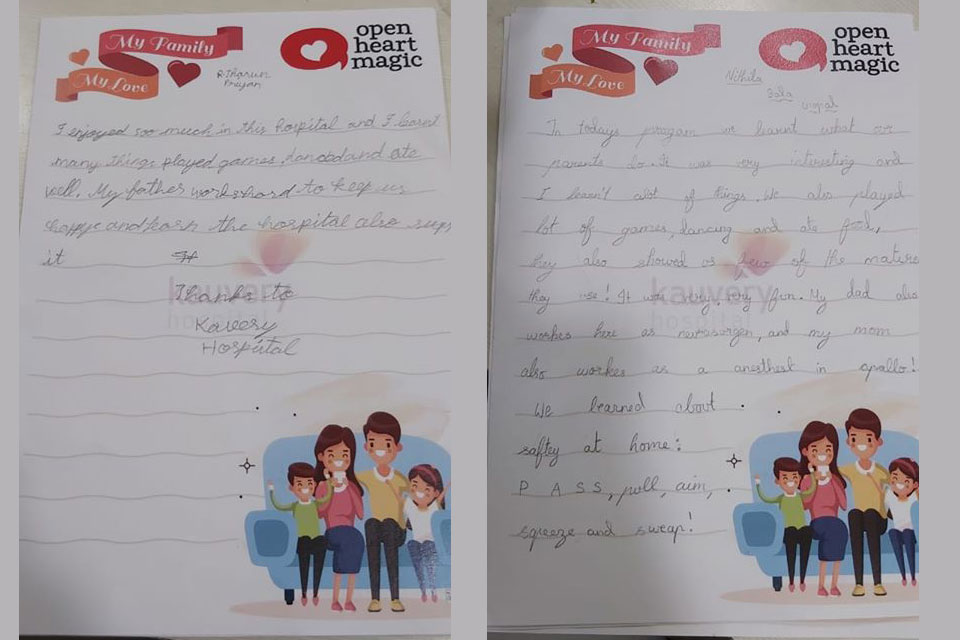 My Family
My Love
open
heart
magic
R. Tharun
Priyan
I enjoyed soo much in this hospital and I learnt
many things played games, and ate
well. My father workshard to keep us
happy and the hospital also
it
Thanks to
Kavery
Hospital
kauvery
hospital
My Family
My Love
open
heart
magic
Nithila
Bala
In todays program we learnt what our
parents do. It was very interesting and
I learn't alot of things. We also played
lot of games, dancing and ate food,
they also showed us few of the
they use! It was very, very fun. My dad also
workes here as and my mom
also workes as a anesthest in apallo!
We learned about
saftey at home:
P A S S, pull, aim,
sqeeze and sweap!
kauvery
hospital